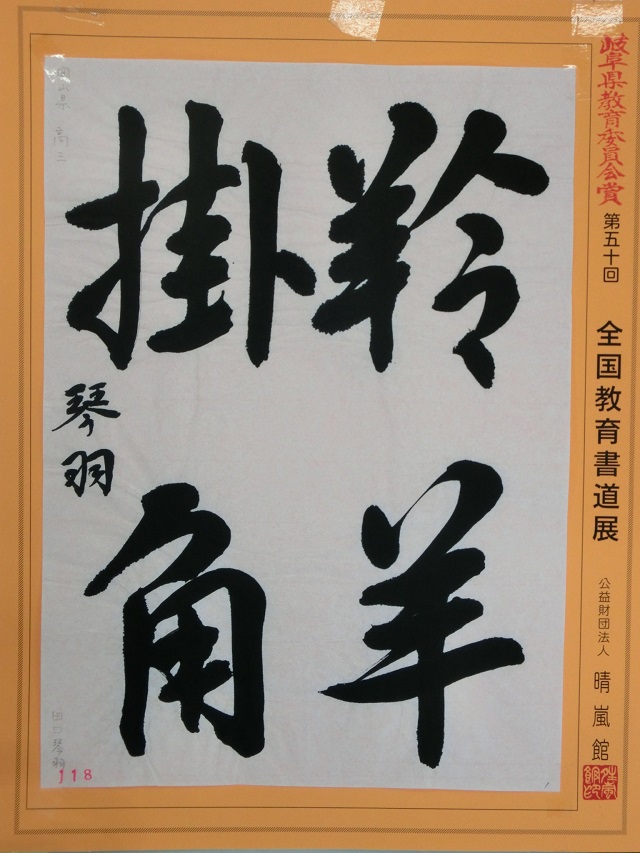 岐阜県教育委員会賞
第五十回
全国教育書道展
公益財団法人
晴嵐館
羚羊
掛角
琴羽
高三
118